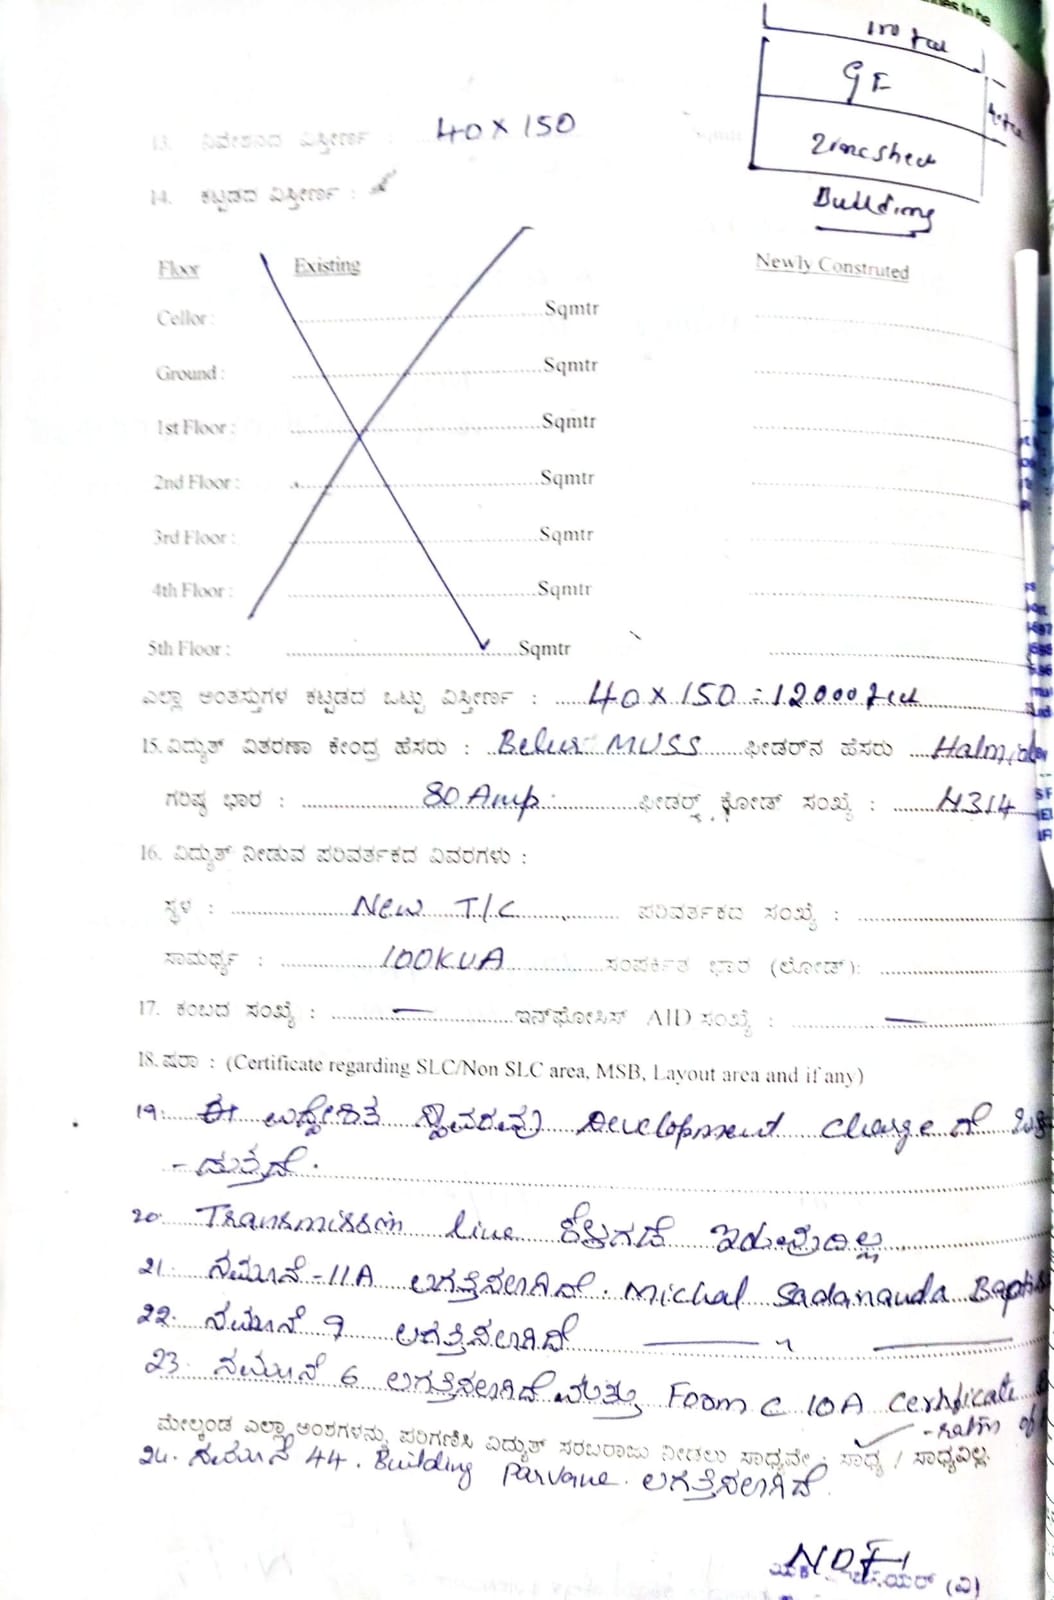 150 feet
GF
Zinc sheet
Building
13. ನಿವೇಶನದ ವಿಸ್ತೀರ್ಣ : 40 x 150
14. ಕಟ್ಟಡದ ವಿಸ್ತೀರ್ಣ :
Floor Existing Newly Construted
Cellor : Sqmtr
Ground : Sqmtr
1st Floor : Sqmtr
2nd Floor : Sqmtr
3rd Floor : Sqmtr
4th Floor : Sqmtr
5th Floor : Sqmtr
ಎಲ್ಲಾ ಅಂತಸ್ತುಗಳ ಕಟ್ಟಡದ ಒಟ್ಟು ವಿಸ್ತೀರ್ಣ : 40 x 150 = 12000 feet
15. ವಿದ್ಯುತ್ ವಿತರಣಾ ಕೇಂದ್ರ ಹೆಸರು : Belur MUSS ಫೀಡರ್‌ನ ಹೆಸರು
ಗರಿಷ್ಠ ಭಾರ : 80 Amp. ಫೀಡರ್ಸ್ ಕೋಡ್ ಸಂಖ್ಯೆ : H314
16. ವಿದ್ಯುತ್ ನೀಡುವ ಪರಿವರ್ತಕದ ವಿವರಗಳು :
ಸ್ಥಳ : New T/C ಪರಿವರ್ತಕದ ಸಂಖ್ಯೆ :
ಸಾಮರ್ಥ್ಯ : 100KVA ಸಂಪರ್ಕಿತ ಭಾರ (ಲೋಡ್):
17. ಕಂಬದ ಸಂಖ್ಯೆ : — ಇನ್‌ಫೋಸಿಸ್ AID ಸಂಖ್ಯೆ : —
18. ಷರಾ : (Certificate regarding SLC/Non SLC area, MSB, Layout area and if any)
19. ಈ ಉದ್ದೇಶಿತ ಸ್ಥಾವರವು Development charge ಗೆ
- ಡುತ್ತದೆ.
20. Transmission line ಕೆಳಗಡೆ ಇರುವುದಿಲ್ಲ
21. ನಮೂನೆ - 11A ಲಗತ್ತಿಸಲಾಗಿದೆ. Michal Sadananda
22. ನಮೂನೆ 9 ಲಗತ್ತಿಸಲಾಗಿದೆ — " —
23. ನಮೂನೆ 6 ಲಗತ್ತಿಸಲಾಗಿದೆ ಮತ್ತು Form C 10A Certificate
ಮೇಲ್ಕಂಡ ಎಲ್ಲಾ ಅಂಶಗಳನ್ನು ಪರಿಗಣಿಸಿ ವಿದ್ಯುತ್ ಸರಬರಾಜು ನೀಡಲು ಸಾಧ್ಯವೇ : ಸಾಧ್ಯ / ಸಾಧ್ಯವಿಲ್ಲ.
24. ನಮೂನೆ 44. Building Parvane. ಲಗತ್ತಿಸಲಾಗಿದೆ.
(ವಿ)